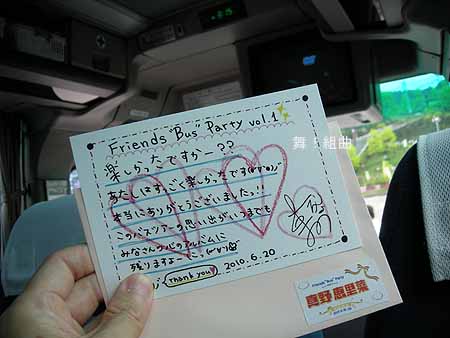 Friends "Bus" Party vol.1
楽しかったですかー??
あたしはすごく楽しかったです
本当にありがとうございました!!
このバスツアーの思い出がいつまでも
みなさんの心のアルバムに
残りますよーに
Thank you♥ 2010.6.20
舞 組曲
Friends "Bus" Party
真野恵里菜